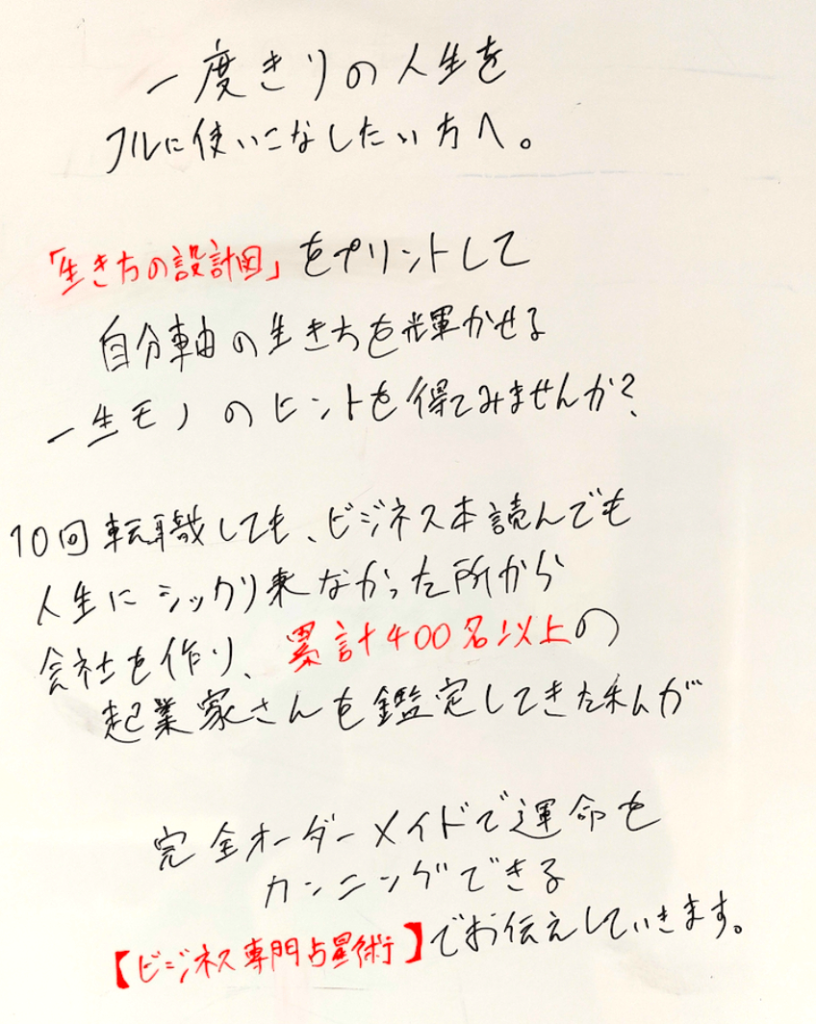 一度きりの人生を
フルに使いこなしたい方へ。
「生き方の設計図」をプリントして
自分軸の生き方を輝かせる
一生モノのヒントを得てみませんか?
10回転職しても、ビジネス本読んでも
人生にシックリ来なかった所から
会社を作り、累計400名以上の
起業家さんを鑑定してきた私が
完全オーダーメイドで運命を
カンニングできる
【ビジネス専門占星術】でお伝えしていきます。